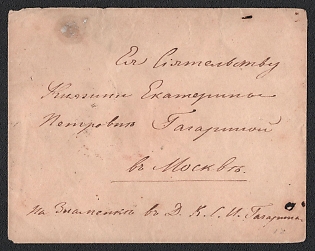 Ея Сіятельству
Княгинѣ Екатеринѣ
Петровнѣ Гагариной
въ Москвѣ.
На Знаменкѣ въ Д. К. Л. И. Гагарина.